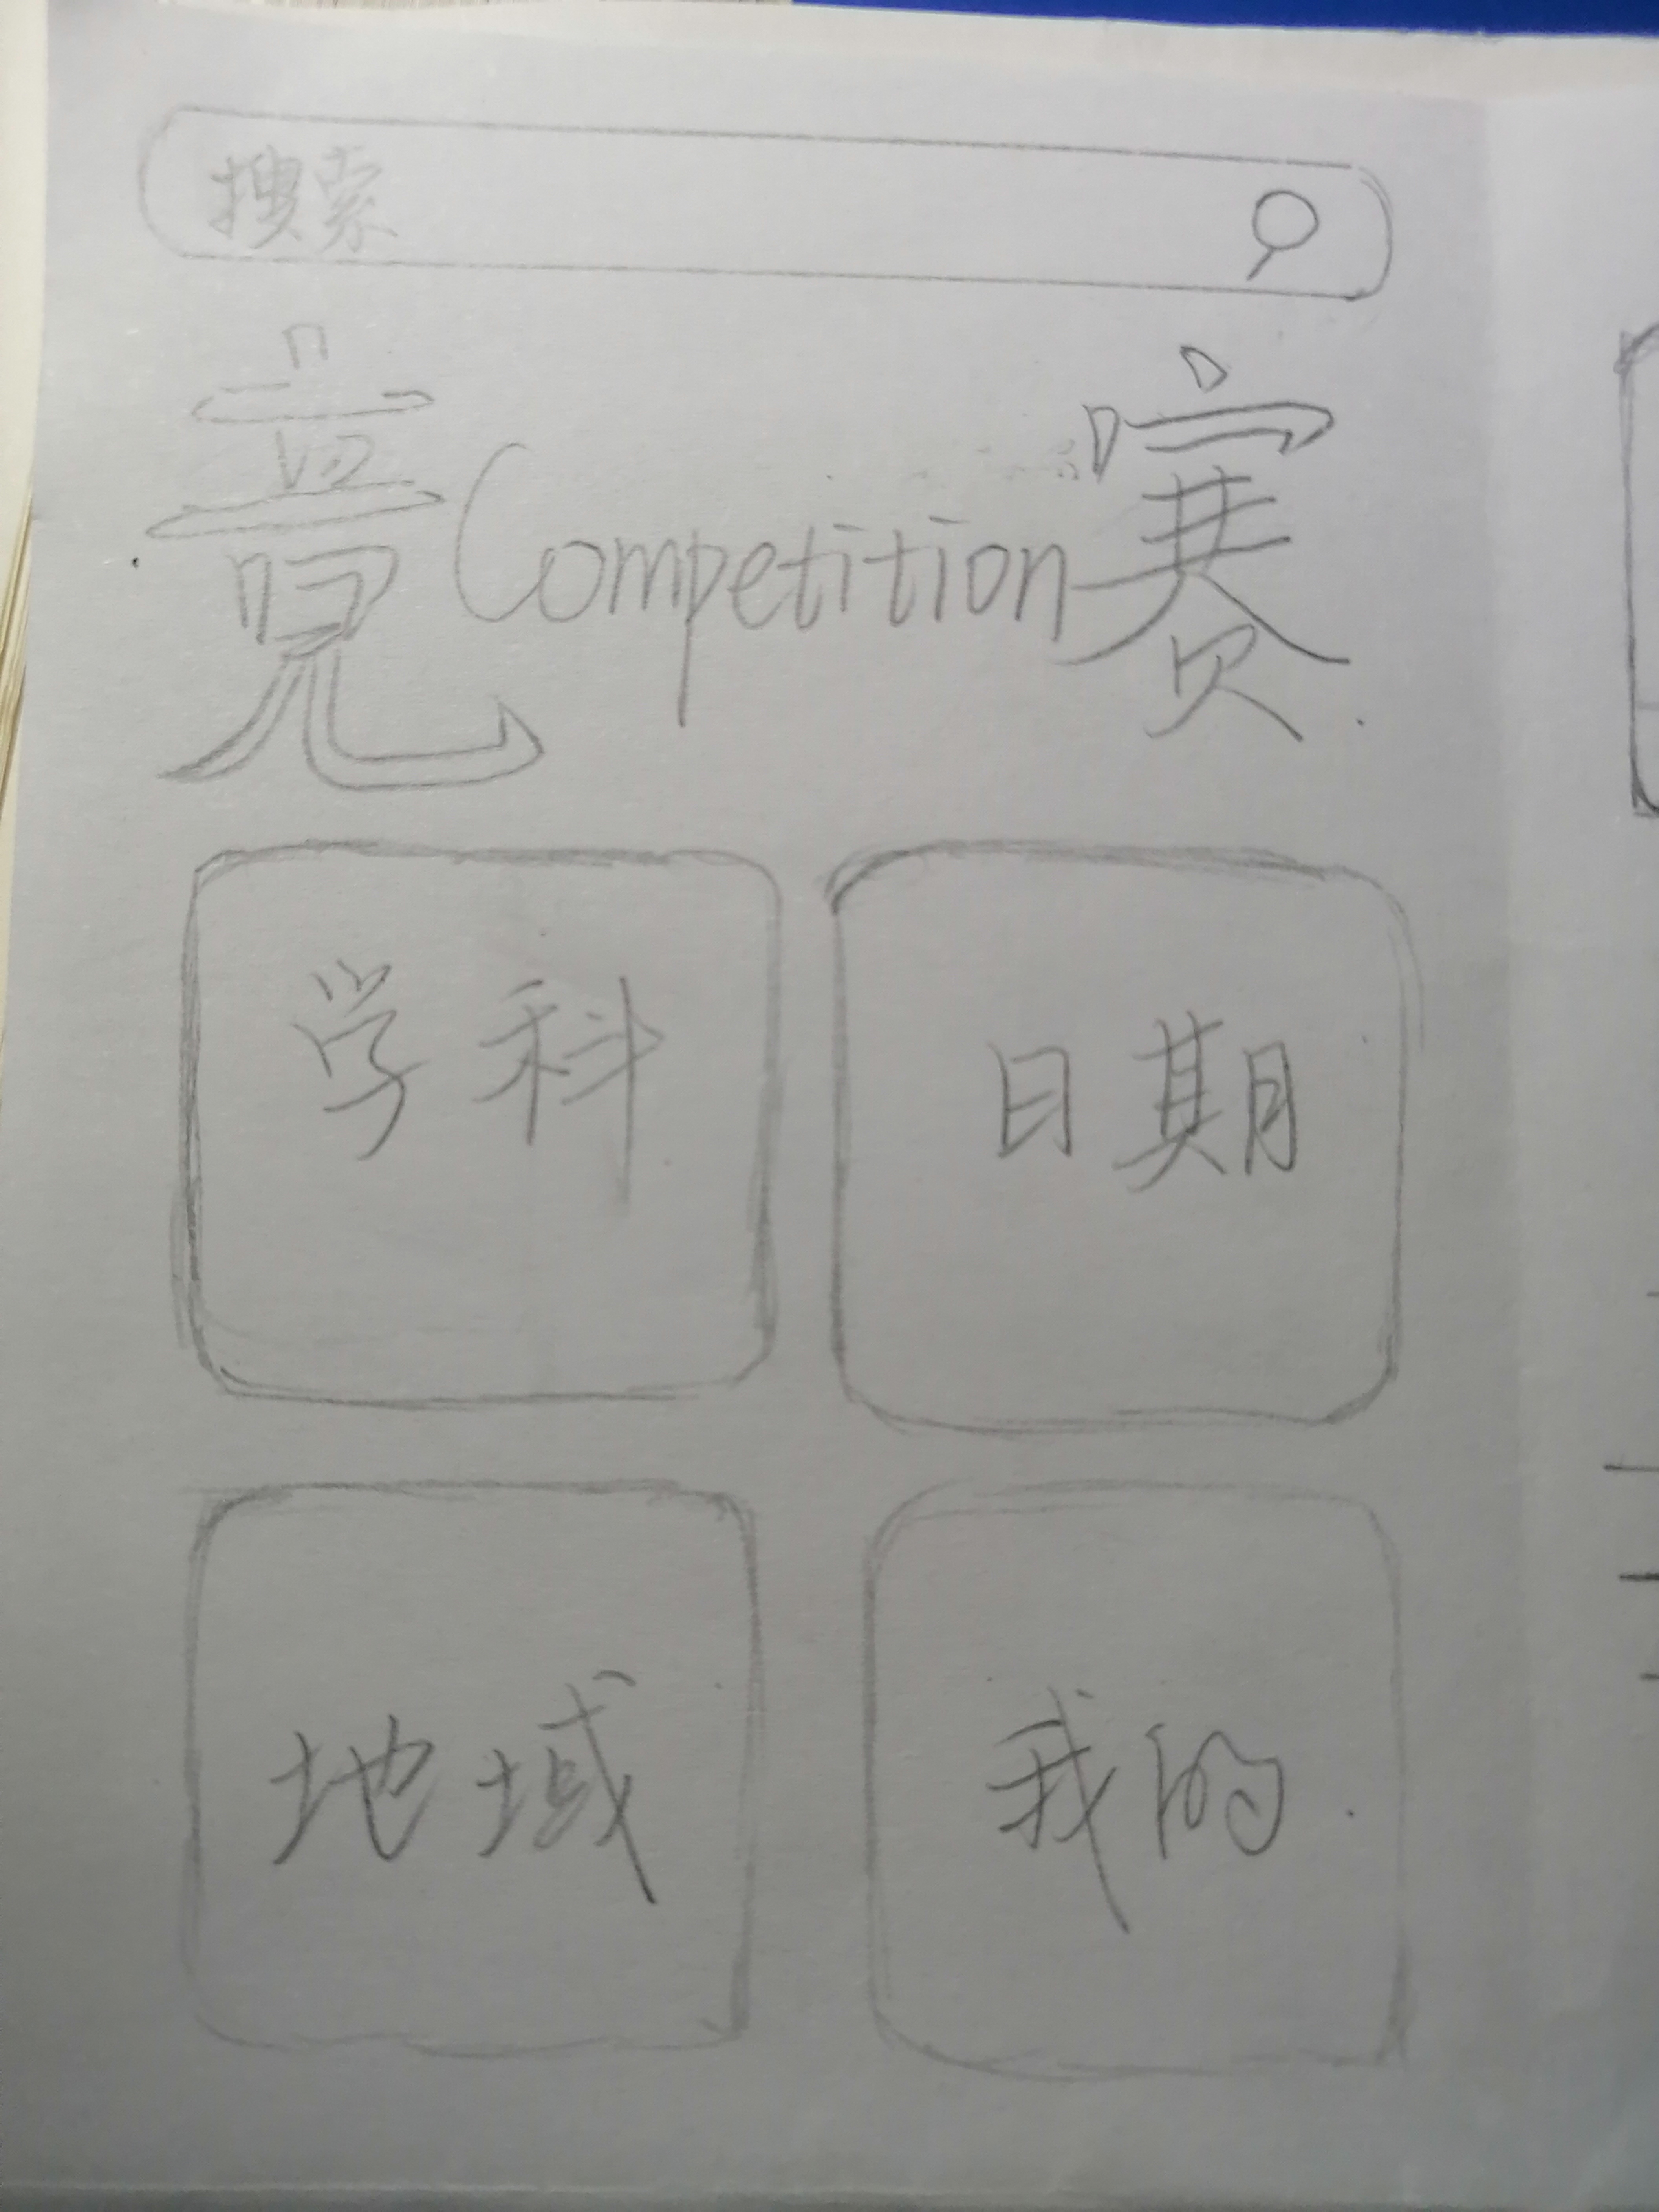 搜索
竞Competition赛
学科
日期
地域
我的